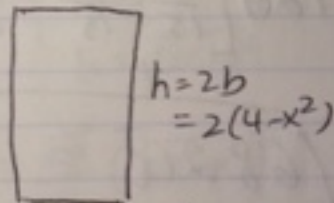 h=2b
=2(4-x²)